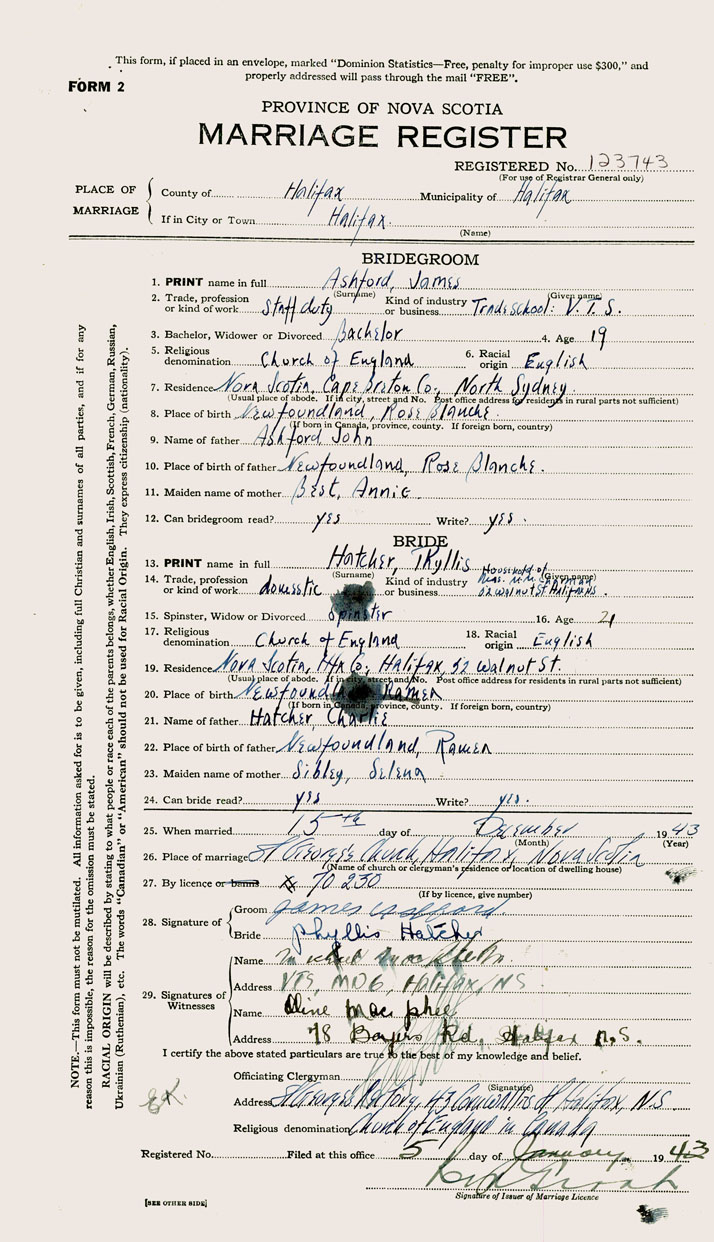 This form, if placed in an envelope, marked "Dominion Statistics—Free, penalty for improper use $300," and
properly addressed will pass through the mail "FREE".
FORM 2
PROVINCE OF NOVA SCOTIA
MARRIAGE REGISTER
REGISTERED No. 123743
(For use of Registrar General only)
PLACE OF MARRIAGE
County of Halifax Municipality of Halifax
If in City or Town Halifax.
(Name)
BRIDEGROOM
1. PRINT name in full Ashford, James
(Surname) (Given name)
2. Trade, profession or kind of work Staff duty Kind of industry or business Trade school: V.T.S.
3. Bachelor, Widower or Divorced Bachelor 4. Age 19
5. Religious denomination Church of England 6. Racial origin English
7. Residence Nova Scotia, Cape Breton Co, North Sydney.
(Usual place of abode. If in city, street and No. Post office address for residents in rural parts not sufficient)
8. Place of birth Newfoundland, Rose Blanche.
(If born in Canada, province, county. If foreign born, country)
9. Name of father Ashford John
10. Place of birth of father Newfoundland, Rose Blanche.
11. Maiden name of mother Best, Annie
12. Can bridegroom read? yes Write? yes.
BRIDE
13. PRINT name in full Hatcher, Phyllis
(Surname) (Given name)
14. Trade, profession or kind of work domestic Kind of industry or business Household of Mrs. 52 Walnut St Halifax NS.
15. Spinster, Widow or Divorced Spinster 16. Age 21
17. Religious denomination Church of England 18. Racial origin English
19. Residence Nova Scotia, Hfx Co, Halifax, 52 Walnut St.
(Usual place of abode. If in city, street and No. Post office address for residents in rural parts not sufficient)
20. Place of birth Newfoundland Ramea
(If born in Canada, province, county. If foreign born, country)
21. Name of father Hatcher, Charlie
22. Place of birth of father Newfoundland, Ramea
23. Maiden name of mother Sibley, Selena
24. Can bride read? yes Write? yes.
25. When married 15th day of December 1943
(Month) (Year)
26. Place of marriage St George's Church, Halifax, Nova Scotia
(Name of church or clergyman's residence or location of dwelling house)
27. By licence or banns 70230
(If by licence, give number)
28. Signature of
Groom James Ashford.
Bride Phyllis Hatcher
29. Signatures of Witnesses
Name
Address VTS, MD6, Halifax, NS
Name Oline Mac phee
Address 78 Bayers Rd, Halifax N.S.
I certify the above stated particulars are true to the best of my knowledge and belief.
Officiating Clergyman
(Signature)
Address St George's Rectory, 43 Cornwallis St Halifax, N.S.
Religious denomination Church of England in Canada
Registered No. Filed at this office 5 day of January 1943
Signature of Issuer of Marriage Licence
[SEE OTHER SIDE]
NOTE.—This form must not be mutilated. All information asked for is to be given, including full Christian and surnames of all parties, and if for any
reason this is impossible, the reason for the omission must be stated.
RACIAL ORIGIN will be described by stating to what people or race each of the parents belongs, whether English, Irish, Scottish, French, German, Russian,
Ukrainian (Ruthenian), etc. The words "Canadian" or "American" should not be used for Racial Origin. They express citizenship (nationality).